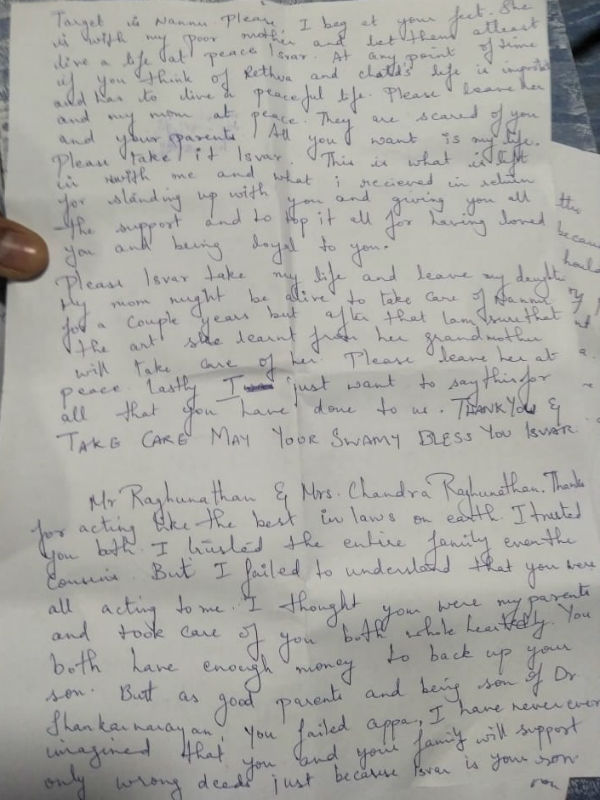 Target is Nannu Please, I beg at your feet. She
is with my poor mother and let them atleast
live a life at peace Isvar. At any point of time
if you think of Rethva and childs life is
and has to live a peaceful life. Please leave her
and my mom at peace. They are scared of you
and your parents. All you want is my life.
Please take it Isvar. This is what is left
in with me and what i recieved in return
for standing up with you and giving you all
the support and to top it all for having loved
you and being loyal to you.
Please Isvar take my life and leave my
My mom might be alive to take care of Nannu
for a couple years but after that I am sure that
the art she learnt from her grandmother
will take care of her. Please leave her at
peace. Lastly I just want to say this for
all that you have done to me. THANK YOU &
TAKE CARE MAY YOUR SWAMY BLESS YOU ISVAR.
Mr Raghunathan & Mrs. Chandra Raghunathan. Thanks
for acting like the best in laws on earth. I trusted
you both. I trusted the entire family even the
cousins. But I failed to understand that you were
all acting to me. I thought you were my parents
and took care of you both whole heartedly. You
both have enough money to back up your
son. But as good parents and being son of Dr
Shankarnarayan, you failed appa, I have never ever
imagined that you and your family will support
only wrong deeds just because Isvar is your son